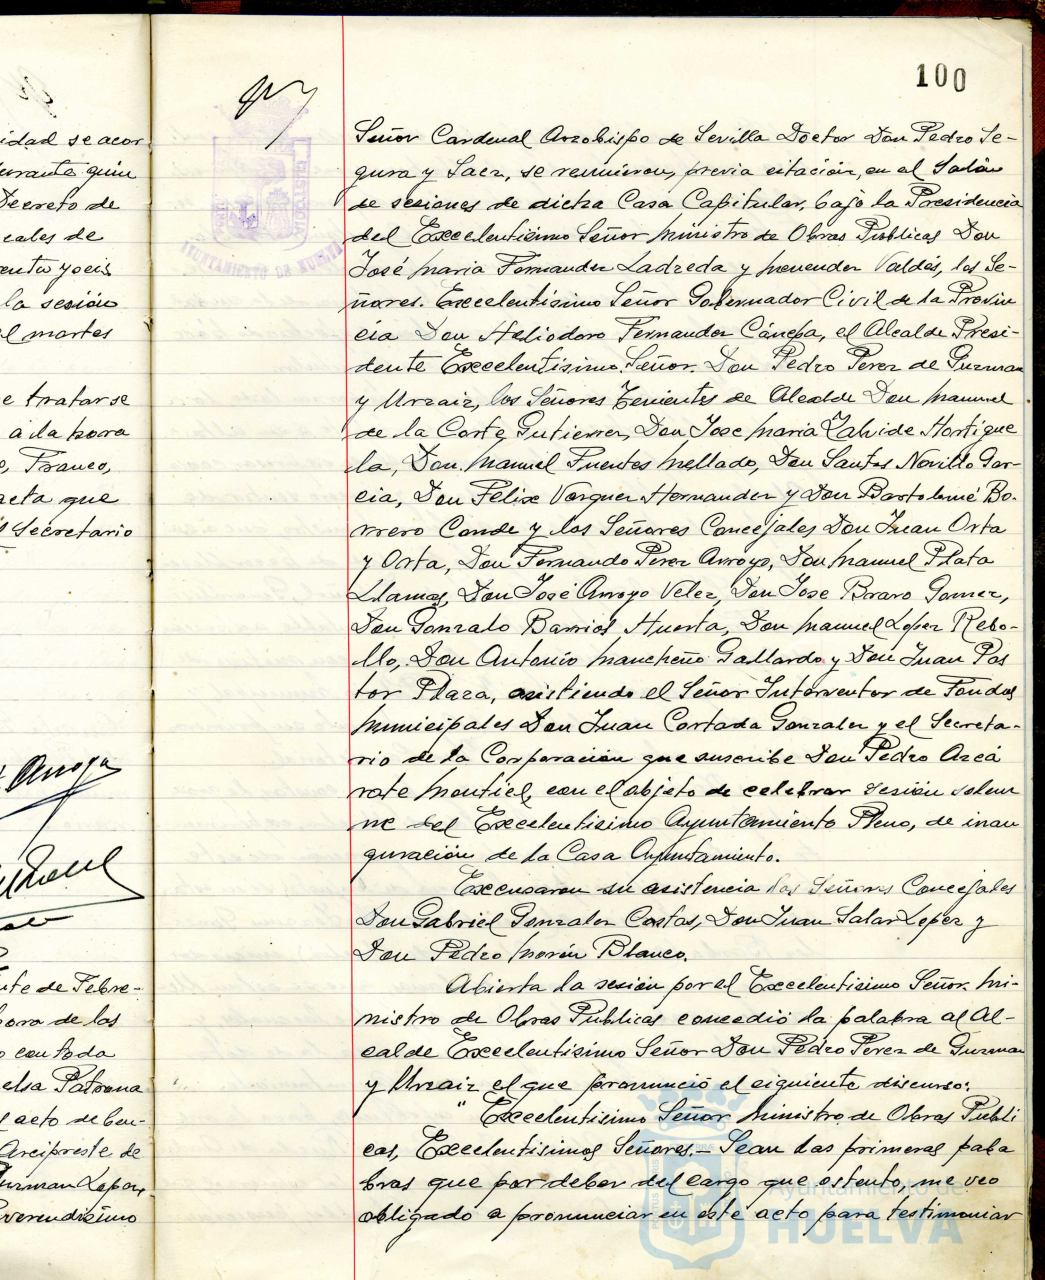 idad se acor
urante quin
Decreto de
eales de
enta y seis
la sesión
el martes
e tratarse
a la hora
o, Franco,
acta que
l Secretario
Arroyo
nte de Febre-
hora de las
o con toda
elsa Patrona
s acto de ben-
Arcipreste de
uzman Lepe
verendisimo
AYUNTAMIENTO DE HUELVA
100
Señor Cardenal Arzobispo de Sevilla Doctor Don Pedro Se-
gura y Saez, se reunieron, previa citación, en el Salón
de sesiones de dicha Casa Capitular, bajo la Presidencia
del Excelentisimo Señor Ministro de Obras Publicas Don
José Maria Fernandez Ladreda y Menendez Valdés, los Se-
ñores. Excelentisimo Señor Gobernador Civil de la Provin
cia Don Heliodoro Fernandez Cánepa, el Alcalde Presi-
dente Excelentísimo Señor Don Pedro Perez de Guzman
y Urzaiz, los Señores Tenientes de Alcalde Don Manuel
de la Corte Gutierrez, Don Jose Maria Zalvide Hortigue
la, Don Manuel Fuentes Mellado, Don Santos Novillo Gar-
cia, Don Felix Vazquez Hernandez y Don Bartolomé Bo-
rrero Conde y los Señores Concejales Don Juan Orta
y Orta, Don Fernando Perez Arroyo, Don Manuel Plata
Llamas, Don José Arroyo Velez, Don Jose Bravo Gomez,
Don Gonzalo Barrios Huerta, Don Manuel Lopez Rebo-
llo, Don Antonio Mancheño Gallardo y Don Juan Pas
tor Plaza, asistiendo el Señor Interventor de Fondos
Municipales Don Juan Cortada Gonzalez y el Secreta-
rio de la Corporación que suscribe Don Pedro Azcá
rate Montiel, con el objeto de celebrar sesión solem
ne del Excelentisimo Ayuntamiento Pleno, de inau
guración de la Casa Ayuntamiento.
Excusaron su asistencia los Señores Concejales
Don Gabriel Gonzalez Costas, Don Juan Salas Lopez y
Don Pedro Morón Blanco.
Abierta la sesión por el Excelentisimo Señor Mi-
nistro de Obras Publicas concedió la palabra al Al-
calde Excelentisimo Señor Don Pedro Perez de Guzman
y Urzaiz el que pronunció el siguiente discurso:
" Excelentisimo Señor Ministro de Obras Publi
cas, Excelentisimos Señores.- Sean las primeras pala
bras que por deber del cargo que ostento, me veo
obligado a pronunciar en este acto para testimoniar
Ayuntamiento de
HUELVA